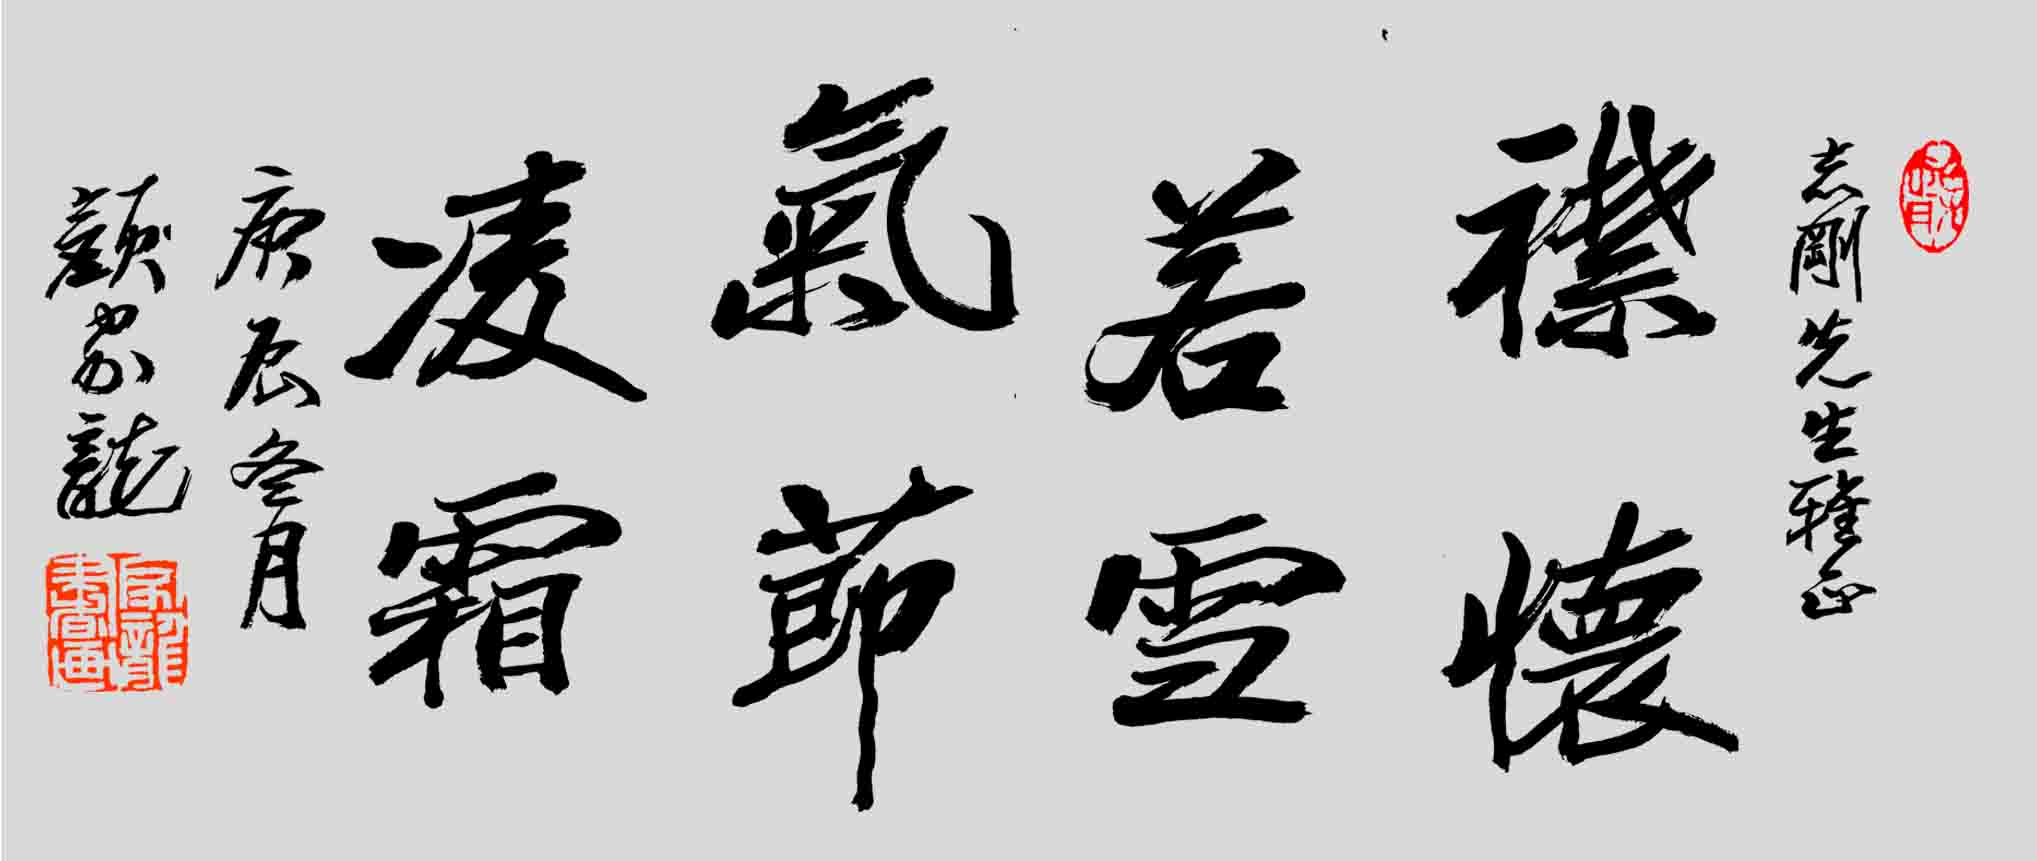 志剛先生雅正
襟懷
若雪
氣節
凌霜
庚辰冬月
顏家龍
家龍
書畫